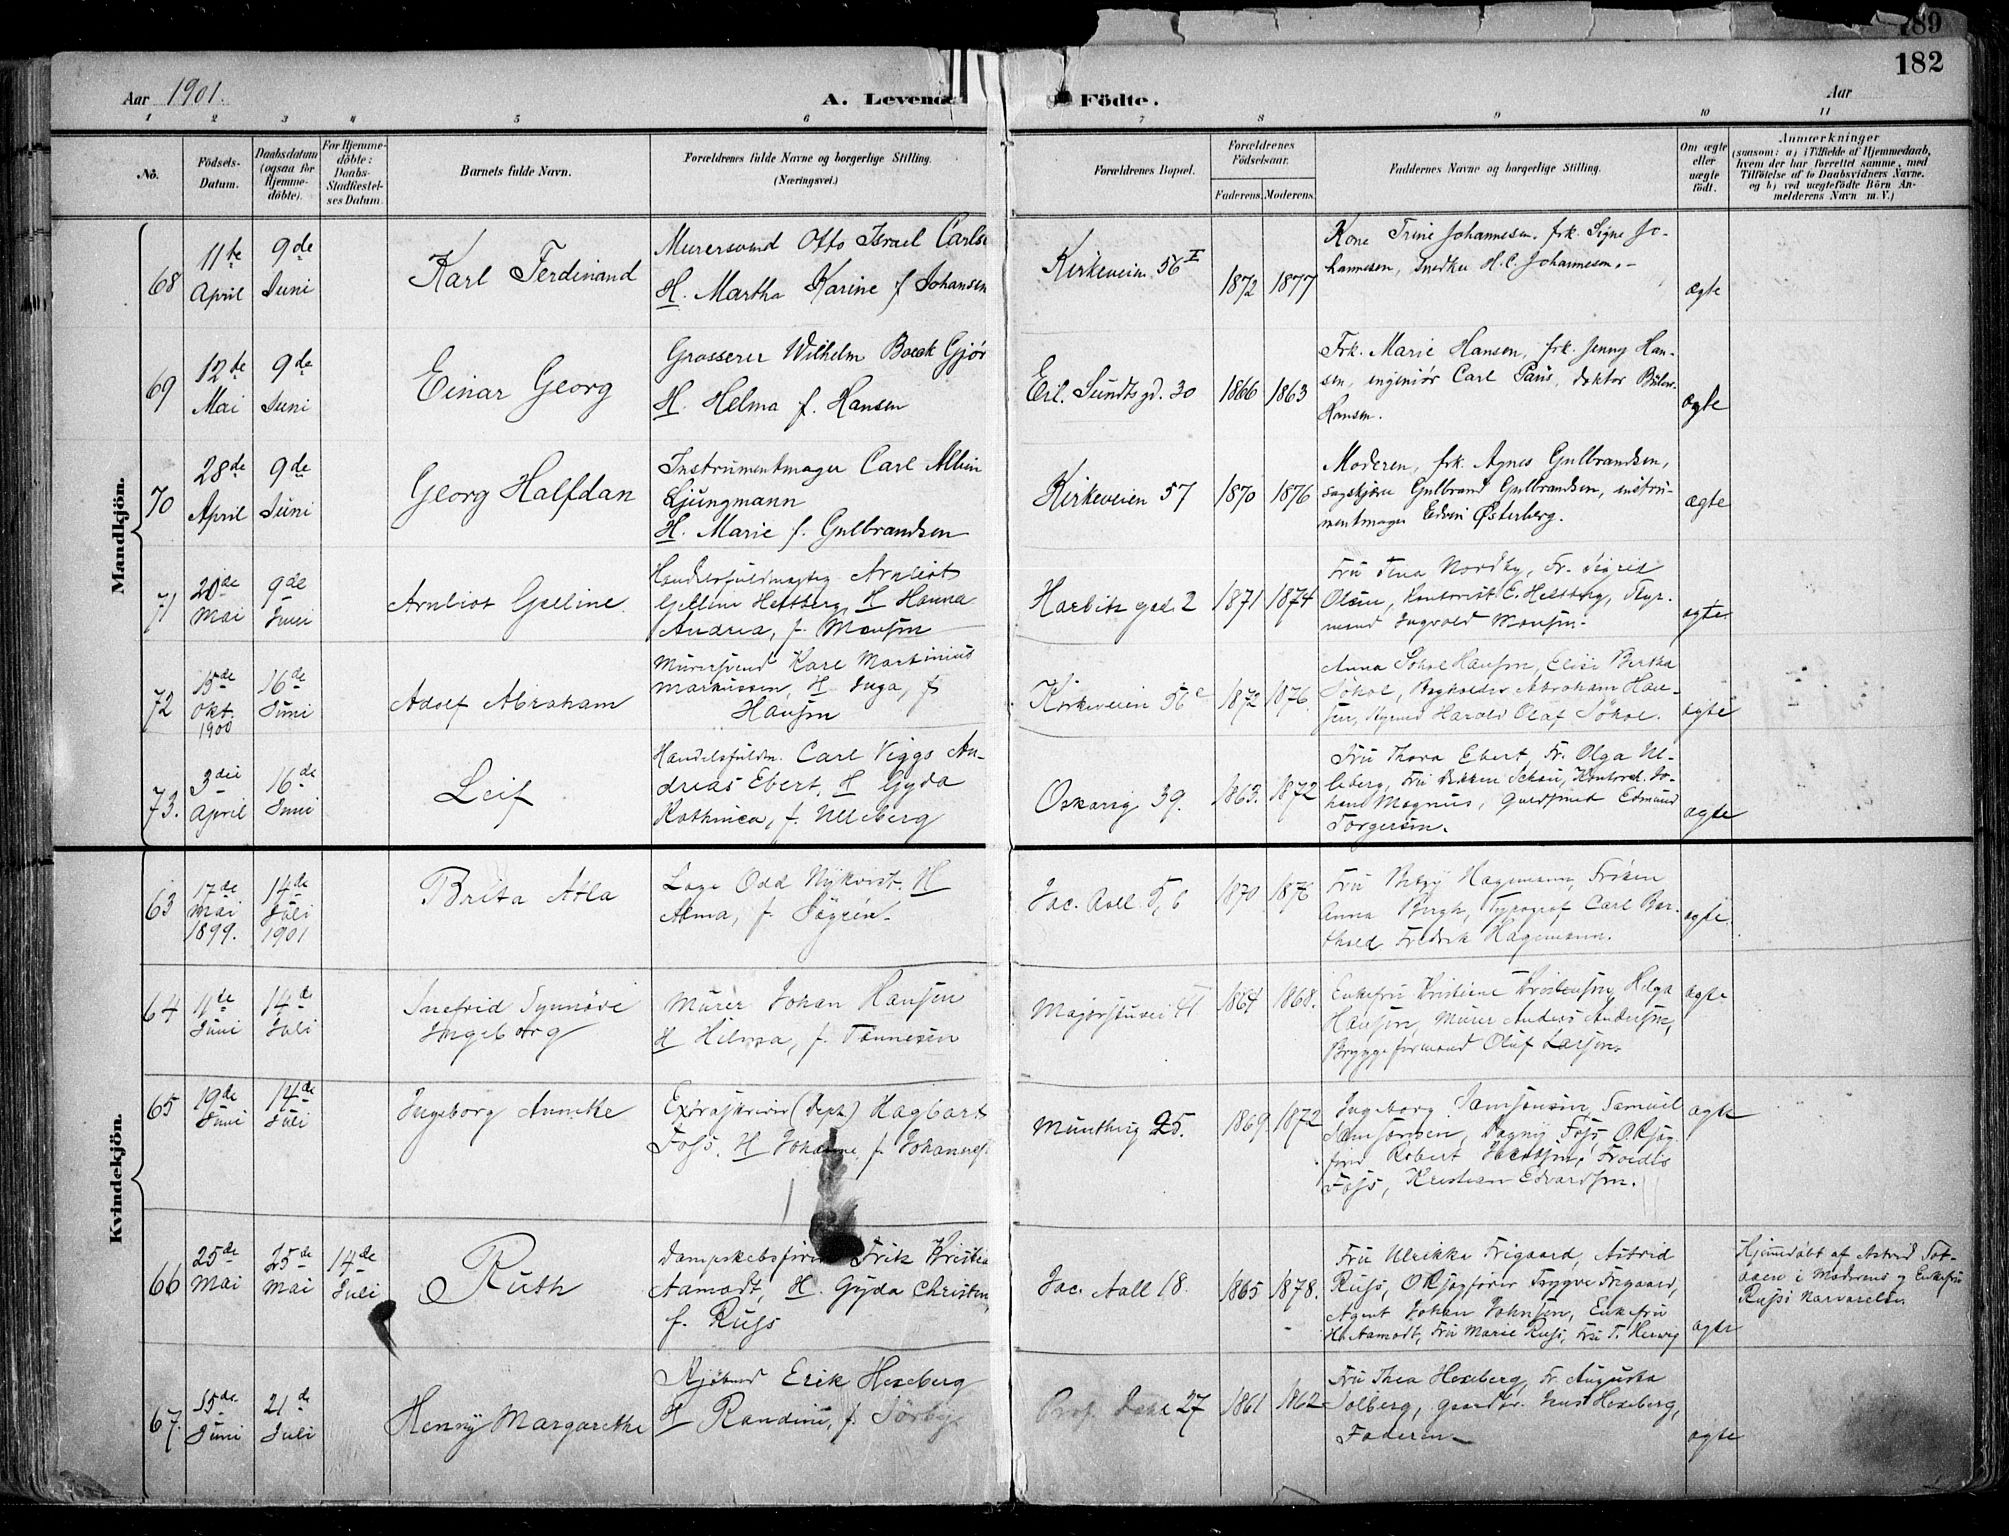 189
182
Aar 1901.
A. Levende Födte.
Aar
1 2 3 4 5 6 7 8 9 10 11
No.
Födsels-Datum.
Daabsdatum (ogsaa for Hjemmedöbte).
For Hjemmedöbte: Daabs-Stadfæstelses Datum.
Barnets fulde Navn.
Forældrenes fulde Navne og borgerlige Stilling.
(Næringsvei.)
Forældrenes Bopæl.
Forældrenes Födselsaar.
Faderens. Moderens.
Faddernes Navne og borgerlige Stilling.
Om ægte eller uægte födt.
Anmærkninger
(saasom: a) i Tilfælde af Hjemmedaab,
hvem der har forrettet samme, med
Tilföielse af to Daabsvidners Navne.
og b) ved uægtefödte Börn An-
melderens Navn m. V.)
Mandkjön.
68 11te April 9de Juni
Karl Ferdinand
Murersvend Otto Israel Carls
H. Martha Karine f Johansen
Kirkeveien 56 I
1872 1877
Kone Trine Johannesen, frk. Signe Jo-
hannesen, snedker H. C. Johannesen.-
ægte
69 12te Mai 9de Juni
Einar Georg
Grosserer Wilhelm Boeck Gjør
H. Helma f. Hansen
Eil. Sundtsgd. 30
1866 1863
Frk. Marie Hansen, frk. Jenny Han-
sen, ingeniør Carl Paus, doktor Bülow-
Hansen.
ægte
70 28de April 9de Juni
Georg Halfdan
Instrumentmager Carl Albin
Ljungmann
H. Marie f. Gulbrandsen
Kirkeveien 57
1870 1876
Moderen, frk. Agnes Gulbrandsen,
Gulbrand Gulbrandsen, instru-
mentmager Edvin Østerberg.
ægte
71 20de Mai 9de Juni
Arnliot Gelline
Handelsfuldmægtig Arnliot
Gelline Hettberg, H Hanna
Andrea, f. Monsen
Harbitz gad. 2
1871 1874
Fru Tina Nordby, Fr. Sigrid
Olsen, Kontorist E. Helsberg, Styr-
mand Ingvald Monsen.
ægte
72 15de Okt. 1900 16de Juni
Adolf Abraham
Murersvend Karl Martinius
Markussen, H Inga, f
Hansen
Kirkeveien 56 c
1872 1876.
Anna Søhol Hansen, Elise Bertha
Søhol, Bogholder Abraham Han-
sen, Harald Olaf Søhol.
ægte
73. 3die April 16de Juni
Leif
Handelsfuldm. Carl Viggo An-
dreas Ebert, H Gyda
Kathinca, f. Ulleberg
Oskarsg 39.
1863. 1872
Fru Thora Ebert, Fr. Olga Ul-
leberg, Fru Schou, Kontorch. Jo-
han Magnus, Guldsmed Edmund
Torgersen.
ægte
Kvindekjön.
63 17de Mai 1899. 14de Juli 1901
Brita Atla
Læge Odd Nykvist. H
Alma, f. Sögrén.
Jac. Aall G, 6
1870 1876
Fru Betzy Hagemann, Frøken
Anna Bergh, Typograf Carl Bar-
thold Fredrik Hagemann.
ægte.
64 11te Juni 14de Juli
Snefrid Synnøve
Ingeborg
Murer Johan Hansen
H Hilma, f. Tønnesen
Majorstuvei 41
1864 1868.
Enkefru Kristiene Kristensen, Helga
Hansen, Murer Anders Andersen,
Bryggeformand Oluf Larsen.
ægte
65 19de Juni 14de Juli
Ingeborg Annethe
Extraskriver (Dept.) Hagbart
Foss. H Johanne, f. Johannes
Munthesg 25.
1869 1872
Ingeborg Samsonsen, Samuel
Samsonsen, Dagny Foss, O.Rsag-
fører Robert Jacobsen, Frøedis
Foss, Kristian Edvardsen.
ægte
66 25de Mai 25de Mai 14de Juli
Ruth
Dampskibsfører Frik Kristian
Aamodt, H. Gyda Christin
f. Russ
Jac. Aall 18.
1865 1878.
Fru Ulrikke Frigaard, Astrid
Russ, O Rsagfører Trygve Frigaard,
Agent Johan Johnsen, Enkefru
H. Aamodt, Fru Marie Russ, Fru T. Herwig
ægte
Hjemdøbt af Astrid
i Moderens og Enkefru
Russ' Nærværelse.
67. 15de Juni 21de Juli
Henny Margarethe
Kjøbmd Erik Hexeberg
H Randine, f. Sörbye
Prof. Dahl 27
1861 1862
Fru Thea Hexeberg, Fr Augusta
Solberg, Gaardbr. Hexeberg,
Faderen-
ægte